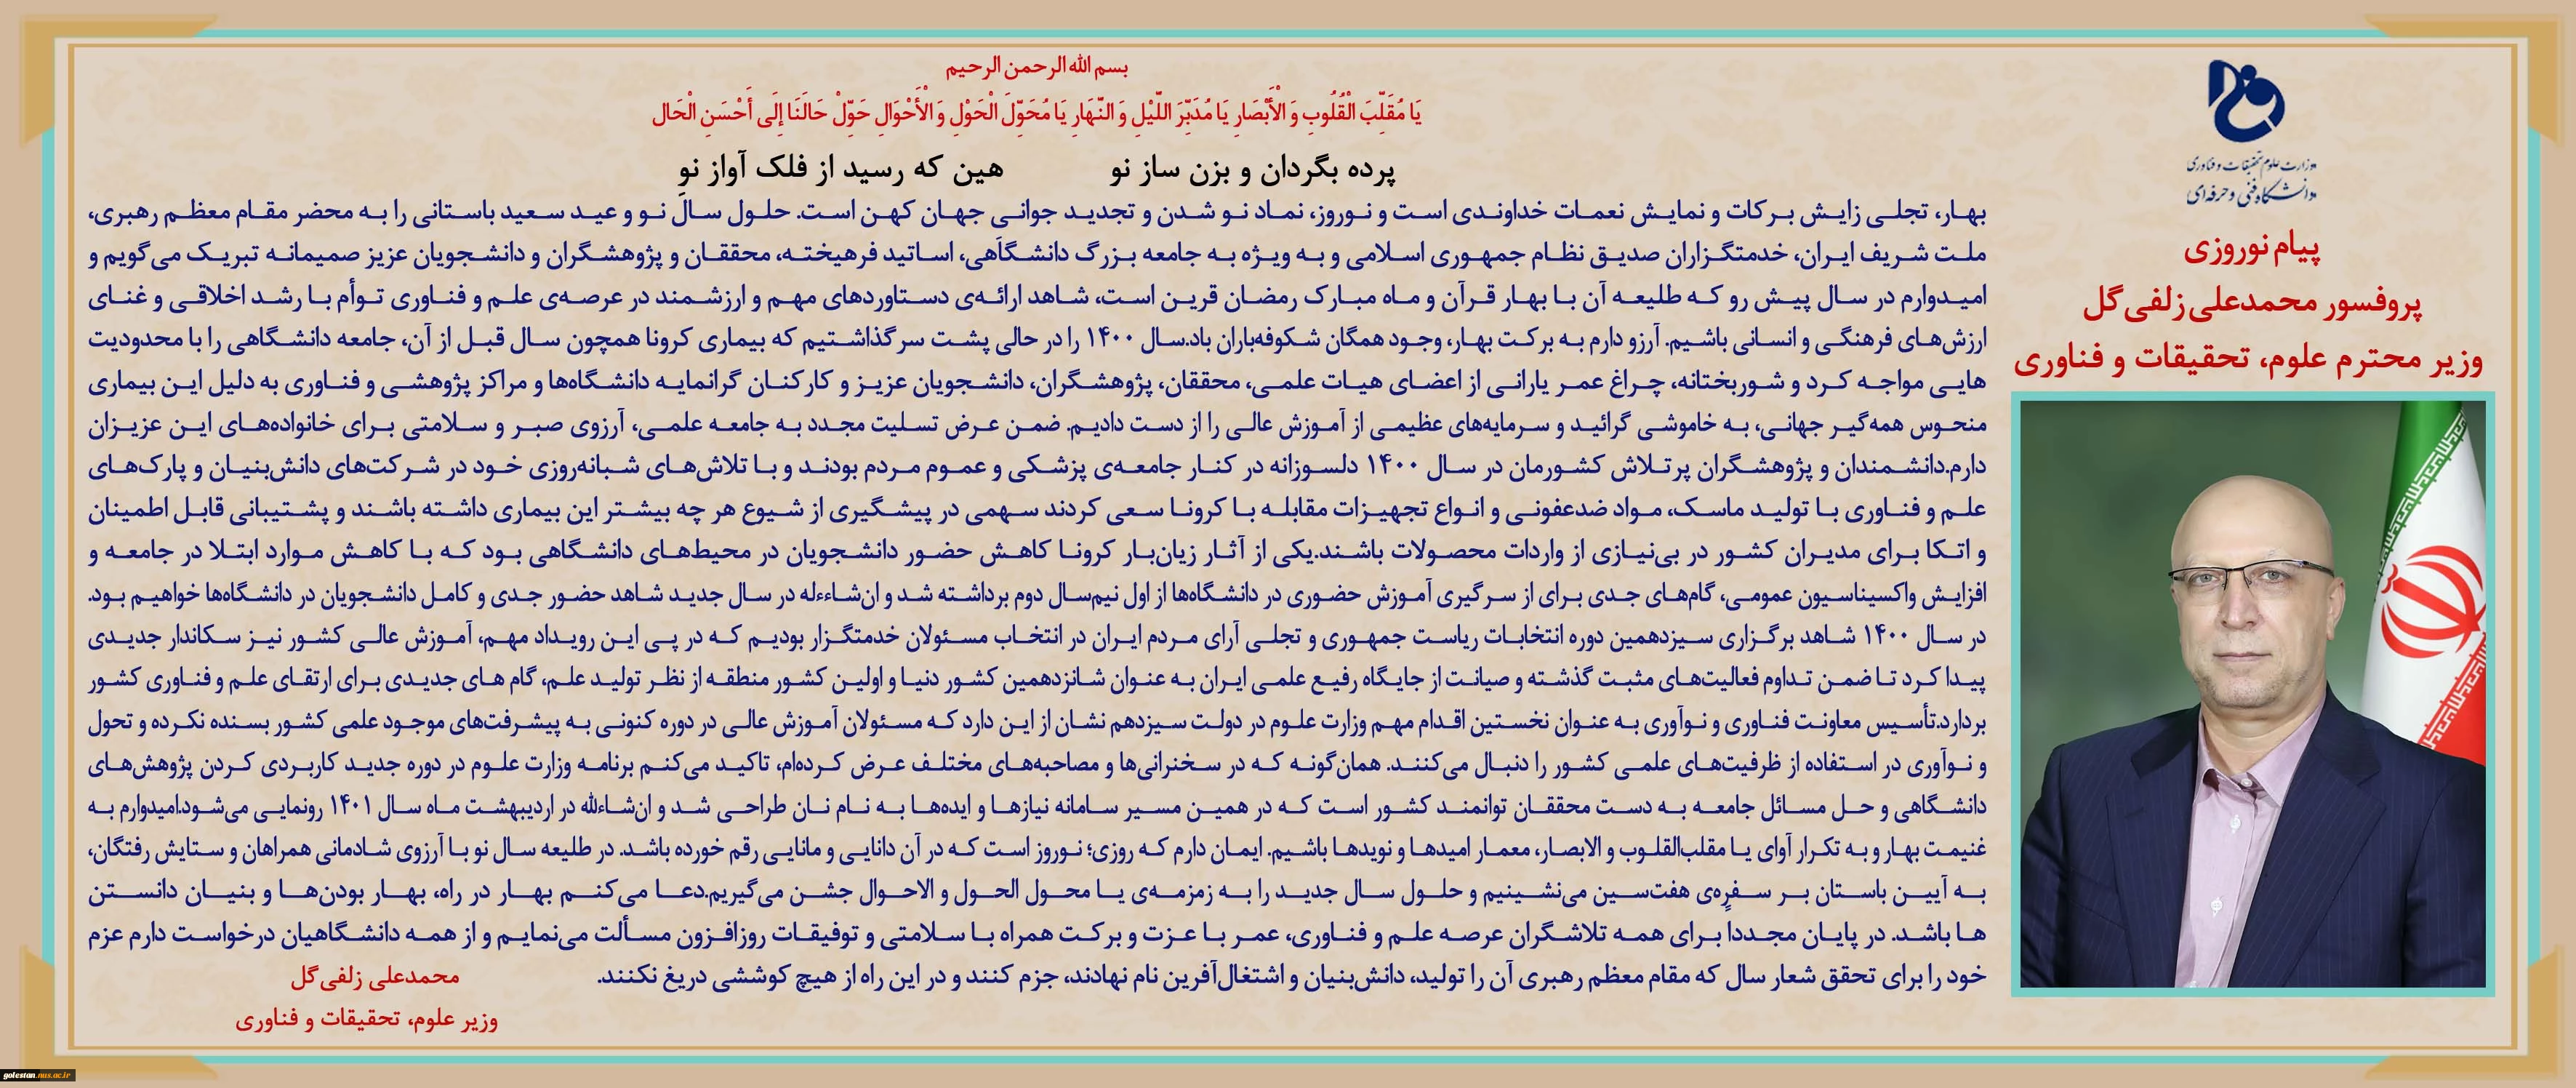 وزارت علوم تحقیقات و فناوری
دانشگاه فنی و حرفه‌ای
پیام نوروزی
پروفسور محمدعلی زلفی گل
وزیر محترم علوم، تحقیقات و فناوری
بسم الله الرحمن الرحیم
یَا مُقَلِّبَ الْقُلُوبِ وَ الْأَبْصَارِ یَا مُدَبِّرَ اللَّیْلِ وَ النَّهَارِ یَا مُحَوِّلَ الْحَوْلِ وَ الْأَحْوَالِ حَوِّلْ حَالَنَا إِلَی أَحْسَنِ الْحَال
پرده بگردان و بزن ساز نو هین که رسید از فلک آواز نو
بهار، تجلی زایش برکات و نمایش نعمات خداوندی است و نوروز، نماد نو شدن و تجدید جوانی جهان کهن است. حلول سال نو و عید سعید باستانی را به محضر مقام معظم رهبری،
ملت شریف ایران، خدمتگزاران صدیق نظام جمهوری اسلامی و به ویژه به جامعه بزرگ دانشگاهی، اساتید فرهیخته، محققان و پژوهشگران و دانشجویان عزیز صمیمانه تبریک می‌گویم و
امیدوارم در سال پیش رو که طلیعه آن با بهار قرآن و ماه مبارک رمضان قرین است، شاهد ارائه‌ی دستاوردهای مهم و ارزشمند در عرصه‌ی علم و فناوری توأم با رشد اخلاقی و غنای
ارزش‌های فرهنگی و انسانی باشیم. آرزو دارم به برکت بهار، وجود همگان شکوفه‌باران باد.سال ۱۴۰۰ را در حالی پشت سر گذاشتیم که بیماری کرونا همچون سال قبل از آن، جامعه دانشگاهی را با محدودیت
هایی مواجه کرد و شوربختانه، چراغ عمر یارانی از اعضای هیات علمی، محققان، پژوهشگران، دانشجویان عزیز و کارکنان گرانمایه دانشگاه‌ها و مراکز پژوهشی و فناوری به دلیل این بیماری
منحوس همه‌گیر جهانی، به خاموشی گرائید و سرمایه‌های عظیمی از آموزش عالی را از دست دادیم. ضمن عرض تسلیت مجدد به جامعه علمی، آرزوی صبر و سلامتی برای خانواده‌های این عزیزان
دارم.دانشمندان و پژوهشگران پرتلاش کشورمان در سال ۱۴۰۰ دلسوزانه در کنار جامعه‌ی پزشکی و عموم مردم بودند و با تلاش‌های شبانه‌روزی خود در شرکت‌های دانش‌بنیان و پارک‌های
علم و فناوری با تولید ماسک، مواد ضدعفونی و انواع تجهیزات مقابله با کرونا سعی کردند سهمی در پیشگیری از شیوع هر چه بیشتر این بیماری داشته باشند و پشتیبانی قابل اطمینان
و اتکا برای مدیران کشور در بی‌نیازی از واردات محصولات باشند.یکی از آثار زیان‌بار کرونا کاهش حضور دانشجویان در محیط‌های دانشگاهی بود که با کاهش موارد ابتلا در جامعه و
افزایش واکسیناسیون عمومی، گام‌های جدی برای از سرگیری آموزش حضوری در دانشگاه‌ها از اول نیم‌سال دوم برداشته شد و ان‌شاءءله در سال جدید شاهد حضور جدی و کامل دانشجویان در دانشگاه‌ها خواهیم بود.
در سال ۱۴۰۰ شاهد برگزاری سیزدهمین دوره انتخابات ریاست جمهوری و تجلی آرای مردم ایران در انتخاب مسئولان خدمتگزار بودیم که در پی این رویداد مهم، آموزش عالی کشور نیز سکاندار جدیدی
پیدا کرد تا ضمن تداوم فعالیت‌های مثبت گذشته و صیانت از جایگاه رفیع علمی ایران به عنوان شانزدهمین کشور دنیا و اولین کشور منطقه از نظر تولید علم، گام های جدیدی برای ارتقای علم و فناوری کشور
بردارد.تأسیس معاونت فناوری و نوآوری به عنوان نخستین اقدام مهم وزارت علوم در دولت سیزدهم نشان از این دارد که مسئولان آموزش عالی در دوره کنونی به پیشرفت‌های موجود علمی کشور بسنده نکرده و تحول
و نوآوری در استفاده از ظرفیت‌های علمی کشور را دنبال می‌کنند. همان‌گونه که در سخنرانی‌ها و مصاحبه‌های مختلف عرض کرده‌ام، تاکید می‌کنم برنامه وزارت علوم در دوره جدید کاربردی کردن پژوهش‌های
دانشگاهی و حل مسائل جامعه به دست محققان توانمند کشور است که در همین مسیر سامانه نیازها و ایده‌ها به نام نان طراحی شد و ان‌شاءلله در اردیبهشت ماه سال ۱۴۰۱ رونمایی می‌شود.امیدوارم به
غنیمت بهار و به تکرار آوای یا مقلب‌القلوب و الابصار، معمار امیدها و نویدها باشیم. ایمان دارم که روزی؛ نوروز است که در آن دانایی و مانایی رقم خورده باشد. در طلیعه سال نو با آرزوی شادمانی همراهان و ستایش رفتگان،
به آیین باستان بر سفره‌ی هفت‌سین می‌نشینیم و حلول سال جدید را به زمزمه‌ی یا محول الحول و الاحوال جشن می‌گیریم.دعا می‌کنم بهار در راه، بهار بودن‌ها و بنیان دانستن
ها باشد. در پایان مجددا برای همه تلاشگران عرصه علم و فناوری، عمر با عزت و برکت همراه با سلامتی و توفیقات روزافزون مسألت می‌نمایم و از همه دانشگاهیان درخواست دارم عزم
خود را برای تحقق شعار سال که مقام معظم رهبری آن را تولید، دانش‌بنیان و اشتغال‌آفرین نام نهادند، جزم کنند و در این راه از هیچ کوششی دریغ نکنند.
محمدعلی زلفی گل
وزیر علوم، تحقیقات و فناوری
golestan.nus.ac.ir